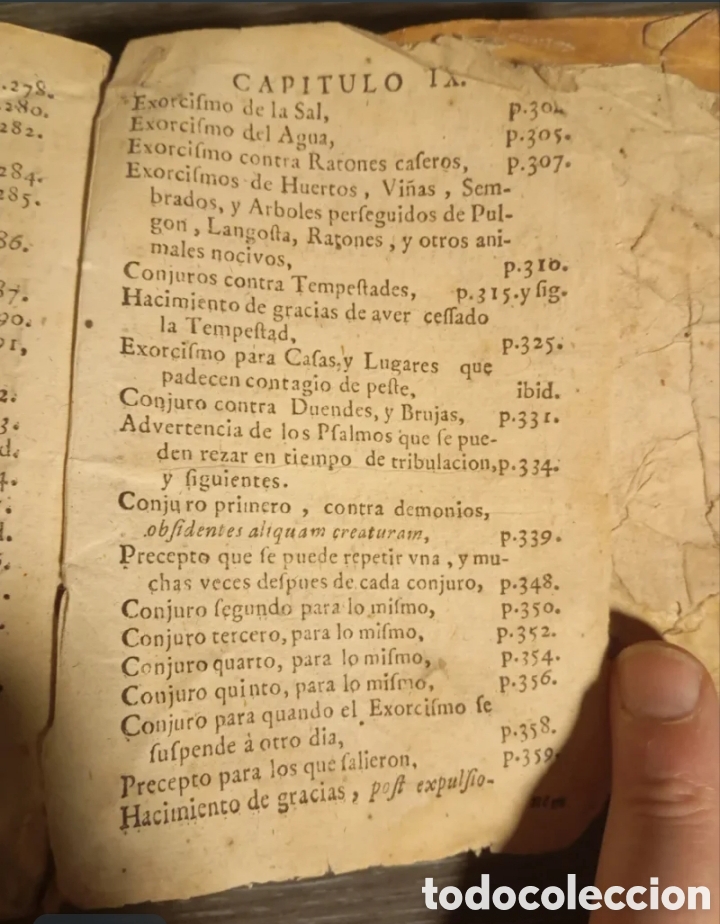 .278.
.280.
282.
284.
285.
86.
87.
90.
91,
2.
3.
d.
4.
CAPITULO IX.
Exorciſmo de la Sal, p.30
Exorciſmo del Agua, p.305.
Exorciſmo contra Ratones caſeros, p.307.
Exorciſmos de Huertos, Viñas, Sem-
brados, y Arboles perſeguidos de Pul-
gon, Langoſta, Ratones, y otros ani-
males nocivos, p.310.
Conjuros contra Tempeſtades, p.315.y ſig.
Hacimiento de gracias de aver ceſſado
la Tempeſtad, p.325.
Exorciſmo para Caſas, y Lugares que
padecen contagio de peſte, ibid.
Conjuro contra Duendes, y Brujas, p.331.
Advertencia de los Pſalmos que ſe pue-
den rezar en tiempo de tribulacion, p.334.
y ſiguientes.
Conjuro primero, contra demonios,
obſidentes aliquam creaturam, p.339.
Precepto que ſe puede repetir vna, y mu-
chas veces deſpues de cada conjuro, p.348.
Conjuro ſegundo para lo miſmo, p.350.
Conjuro tercero, para lo miſmo, p.352.
Conjuro quarto, para lo miſmo, p.354.
Conjuro quinto, para lo miſmo, p.356.
Conjuro para quando el Exorciſmo ſe
ſuſpende à otro dia, p.358.
Precepto para los que ſalieron, p.359.
Hacimiento de gracias, poſt expulſio-
todocoleccion